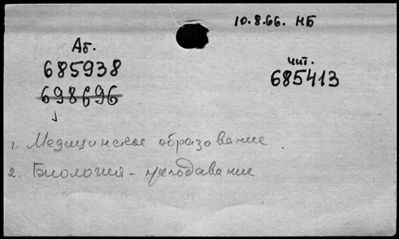 10.8.66. НБ
Аб.
685938
698696
чит.
685413
1. Медицинское образование
2. Биология - преподавание